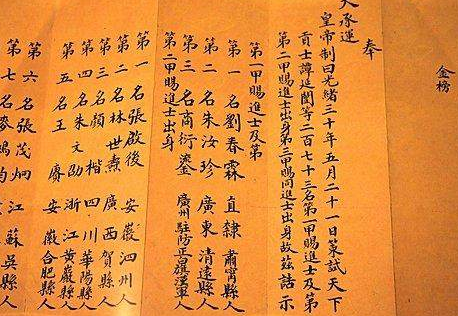 金榜
奉
天承運
皇帝制曰光緒三十年五月二十一日策試天下
貢士譚延闓等二百七十三名第一甲賜進士及第
第二甲賜進士出身第三甲賜同進士出身故茲誥示
第一甲賜進士及第
第一名劉春霖直隸肅甯縣人
第二名朱汝珍廣東清遠縣人
第三名商衍鎏廣州駐防正白旗漢軍人
第二甲賜進士出身
第一名張啟後安徽泗州人
第二名林世燾廣西賀縣人
第三名顏楷四川華陽縣人
第四名朱文劭浙江黃巖縣人
第五名王賡安徽合肥縣人
第六名張茂炯江蘇吳縣人
第七名麥鴻鈞